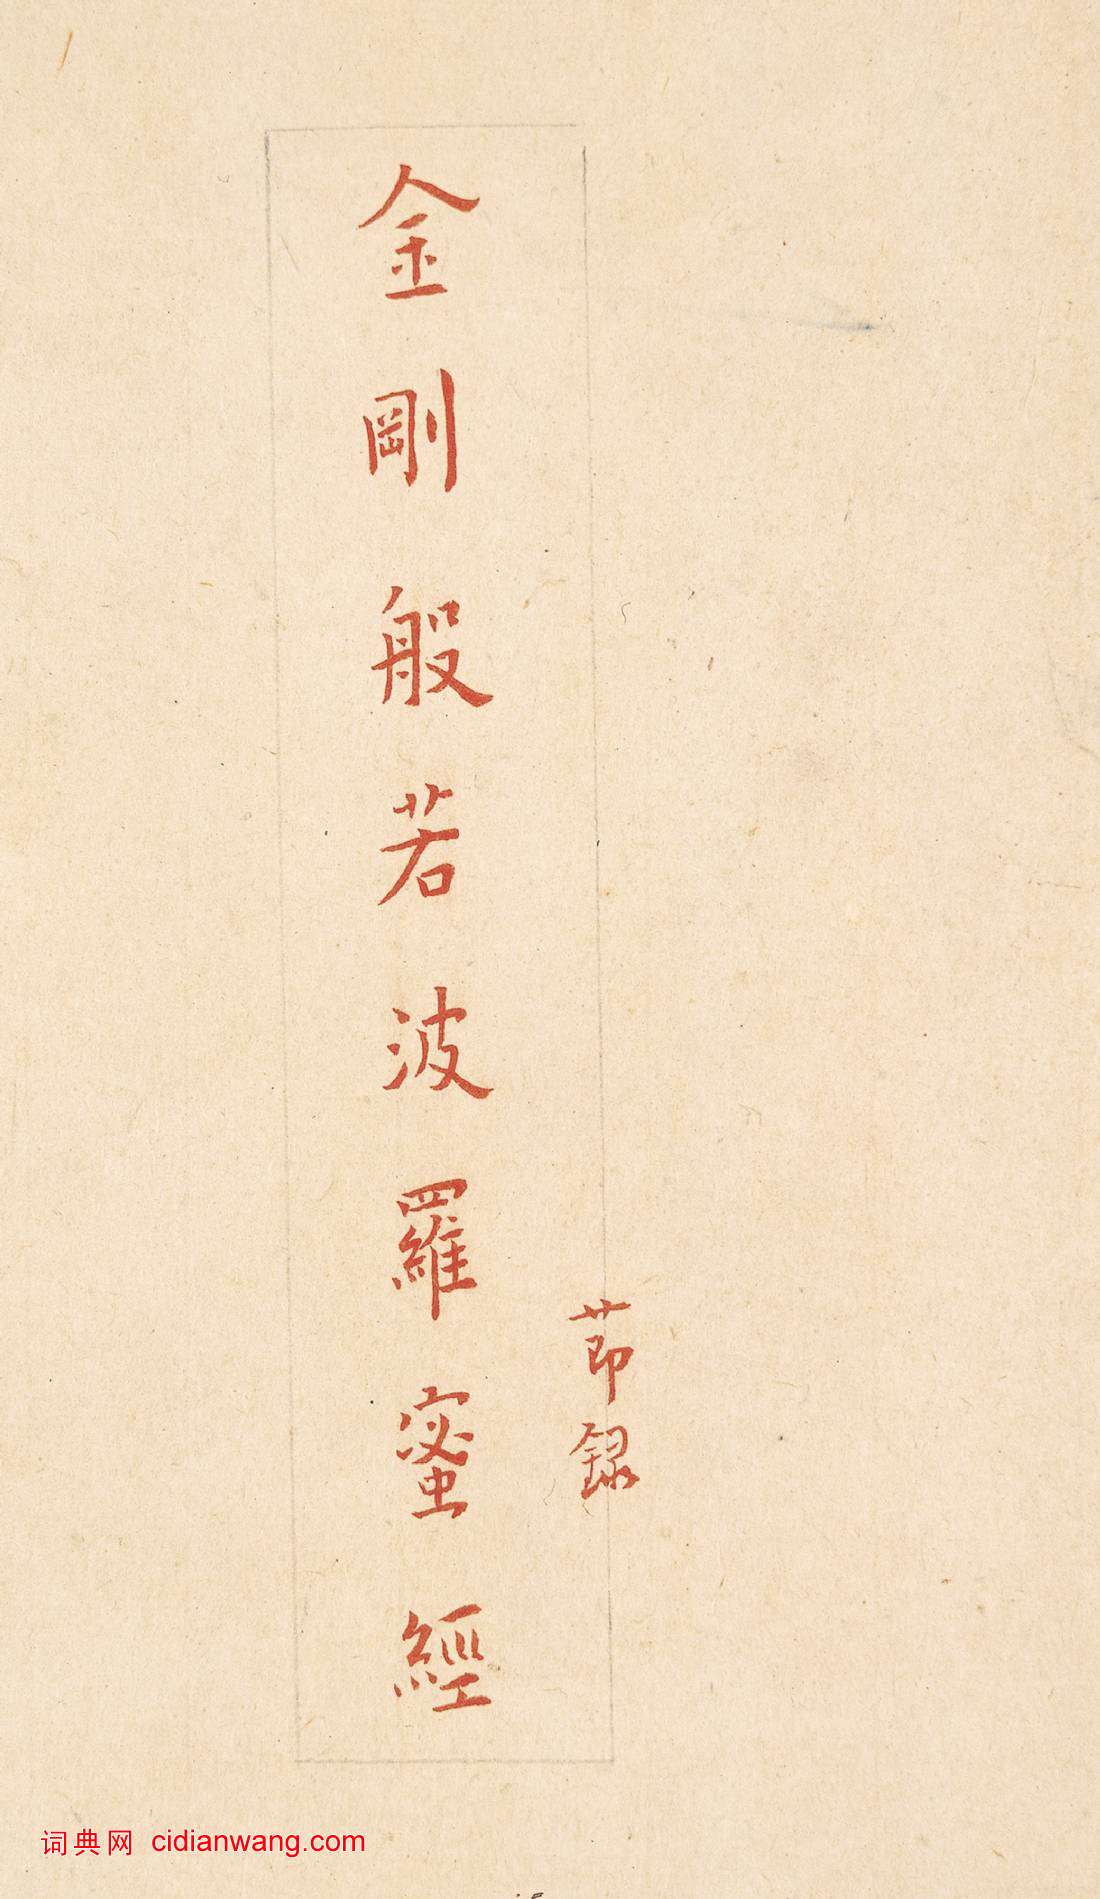 金剛般若波羅蜜經
莭録
词典网 cidianwang.com